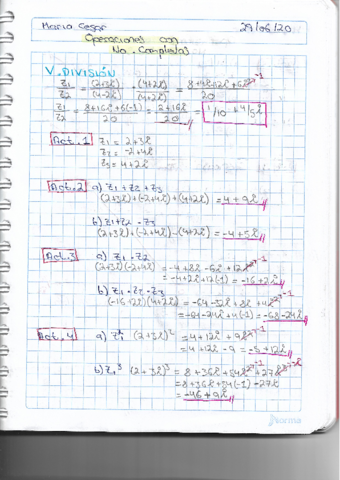 Mario Cesar 29/06/20
Operaciones con
No. Complejos
V. DIVISIÓN
z1/z2 = (2+3i)/(4-2i) · (4+2i)/(4+2i) = 8+4i+12i+6i²⁻¹/20
z1/z2 = 8+16i+6(-1)/20 = 2+16i/20 = 1/10 + 4/5i
Act. 1 z1 = 2+3i
z2 = -2+4i
z3 = 4+2i
Act. 2 a) z1+z2+z3
(2+3i)+(-2+4i)+(4+2i) = 4+9i
b) z1+z2-z3
(2+3i)+(-2+4i)-(4+2i) = -4+5i
Act. 3 a) z1·z2
(2+3i)(-2+4i) = -4+8i-6i+12i²⁻¹
= -4+2i+12(-1) = -16+2i
b) z1·z2·z3
(-16+2i)(4+2i) = -64-32i+8i+4i²⁻¹
= -64-24i+4(-1) = -68-24i
Act. 4 a) z1² (2+3i)² = 4+12i+9i²⁻¹
= 4+12i-9 = -5+12i
b) z1³ (2+3i)³ = 8+36i+54i²⁻¹+27i³
= 8+36i+54(-1)-27i
= -46+9i
norma